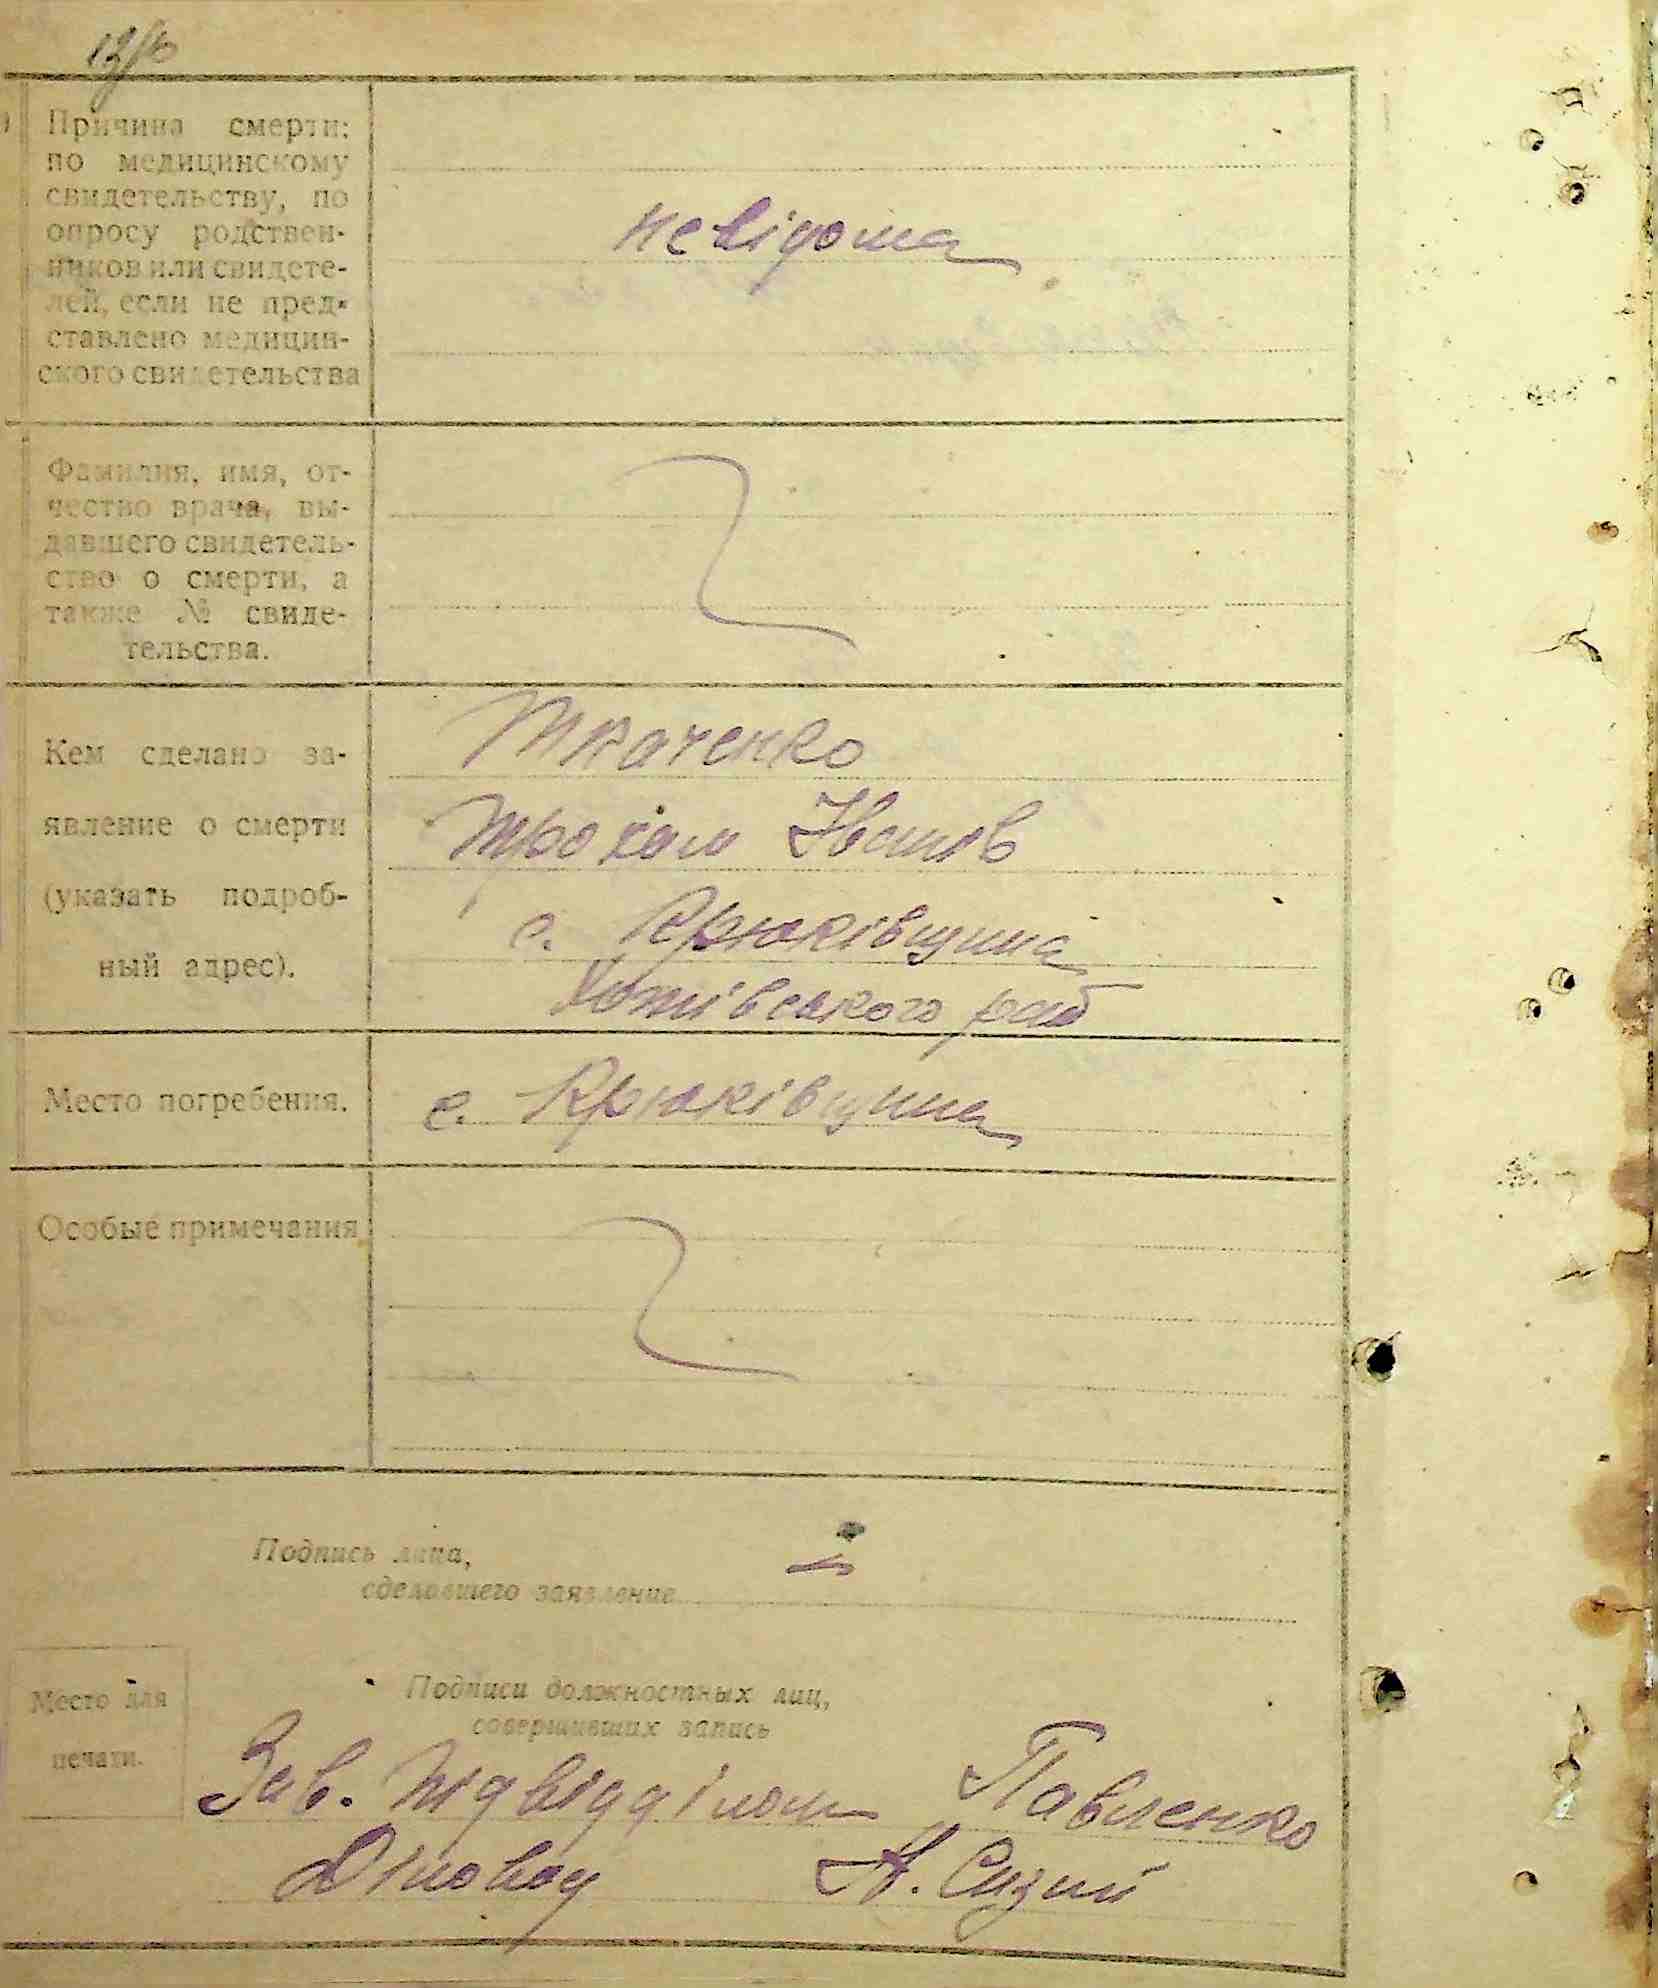 Причина смерти:
по медицинскому
свидетельству, по
опросу родствен-
ников или свидете-
лей, если не пред-
ставлено медицин-
ского свидетельства
невідома
Фамилия, имя, от-
чество врача, вы-
давшего свидетель-
ство о смерти, а
также № свиде-
тельства.
Кем сделано за-
явление о смерти
(указать подроб-
ный адрес).
Ткаченко
Трохим Іванов
с. Крюківщина
рай
Место погребения.
с. Крюківщина
Особые примечания
Подпись лица,
сделавшего заявление
Место для
печати.
Подписи должностных лиц,
совершивших запись
Зав. підвідділом Павленко
Діловод А. Сизий